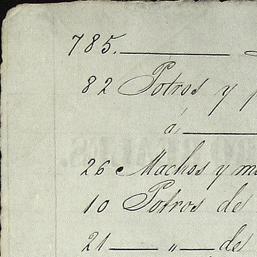 785.
82 Potros y
á
26 Machos y
10 Potros de
21 — " — de